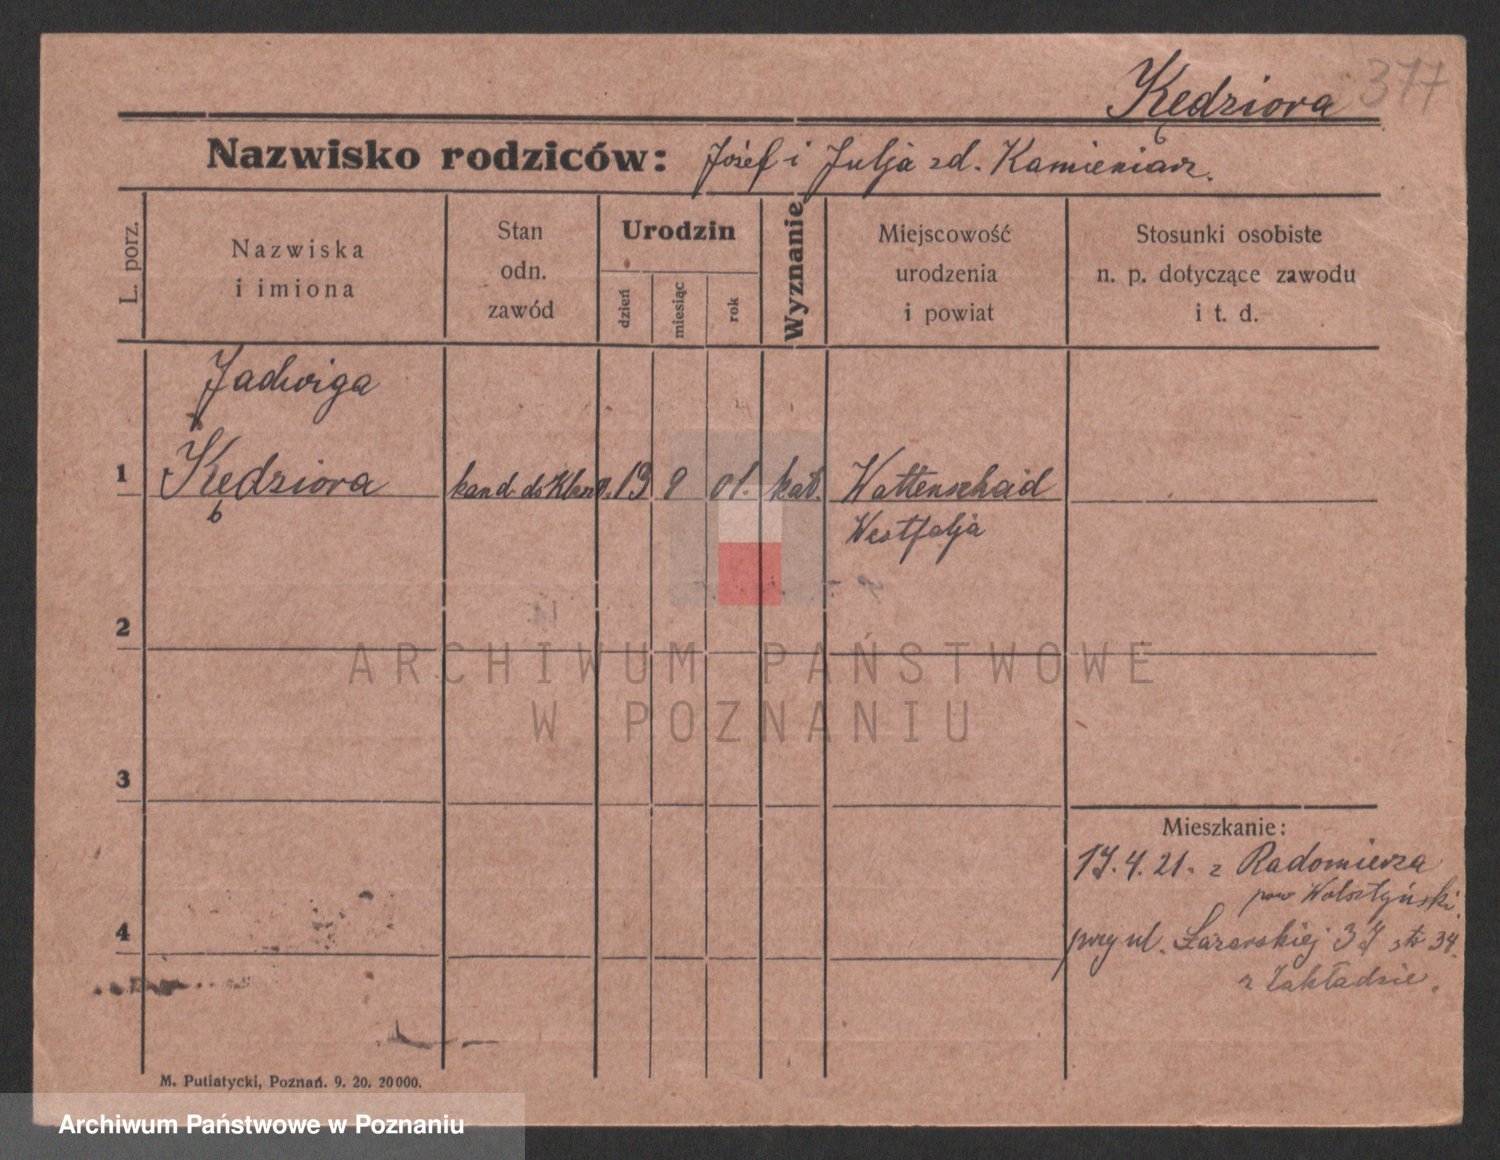 Kędziora 377
Nazwisko rodziców: Józef i Julja zd. Kamieniarz.
L. porz.
Nazwiska
i imiona
Stan
odn.
zawód
Urodzin
dzień
miesiąc
rok
Wyznanie
Miejscowość
urodzenia
i powiat
Stosunki osobiste
n. p. dotyczące zawodu
i t. d.
Jadwiga
1 Kędziora kand. do Klaszt. 19 9 01. kat. Wattenscheid
Westfalja
2
ARCHIWUM PAŃSTWOWE
W POZNANIU
3
Mieszkanie:
17.4.21. z Radomierza
pow Wolsztyński.
4 przy ul. Łazarskiej 37 str 34.
z Zakładzie.
M. Putiatycki, Poznań. 9. 20. 20000.
Archiwum Państwowe w Poznaniu